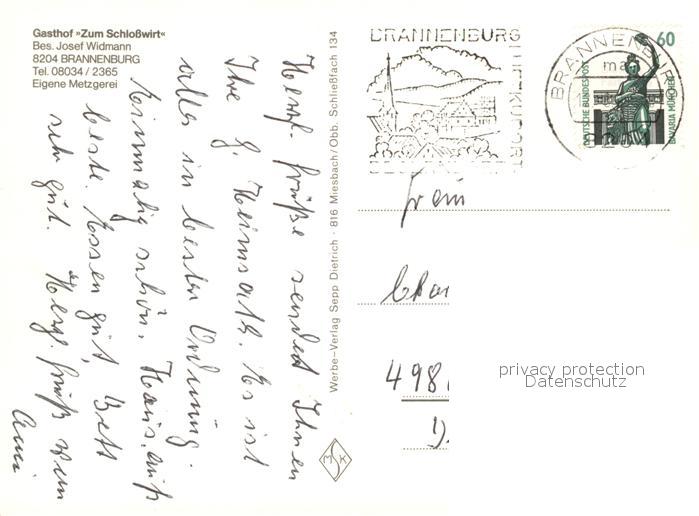 Gasthof »Zum Schloßwirt«
Bes. Josef Widmann
8204 BRANNENBURG
Tel. 08034 / 2365
Eigene Metzgerei
Herzl. Grüße sendet Ihnen
Ihre g. Es ist
alles in bester Ordnung.
Einmalig schön. Haus,
beste. Essen gut, Bett
sehr gut. Herzl. Grüß
Werbe-Verlag Sepp Dietrich · 816 Miesbach/Obb. Schließfach 134
MSK
BRANNENBURG
LUFTKURORT
60
DEUTSCHE BUNDESPOST
BAVARIA MÜNCHEN
Frau
498
D
privacy protection
Datenschutz